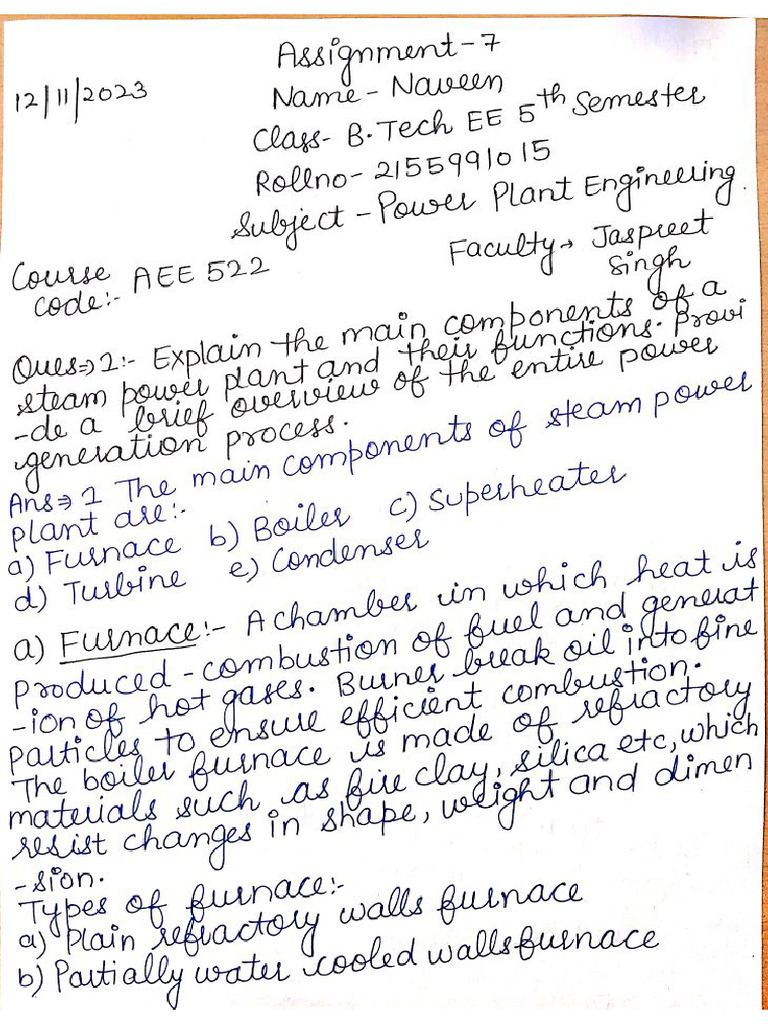 Assignment-7
12/11/2023
Name- Naveen
Class- B.Tech EE 5th Semester
Rollno- 2155991015
Subject - Power Plant Engineering.
Faculty→ Jaspreet
Singh
Course
code:- AEE 522
Ques⇒1:- Explain the main components of a
steam power plant and their functions. Provi
-de a brief overview of the entire power
generation process.
Ans⇒1 The main components of steam power
plant are:-
a) Furnace b) Boiler c) Superheater
d) Turbine e) Condenser
a) Furnace:- A chamber in which heat is
produced - combustion of fuel and generat
-ion of hot gases. Burner break oil into fine
particles to ensure efficient combustion.
The boiler furnace is made of refractory
materials such as fire clay, silica etc, which
resist changes in shape, weight and dimen
-sion.
Types of furnace:-
a) Plain refractory walls furnace
b) Partially water cooled walls furnace